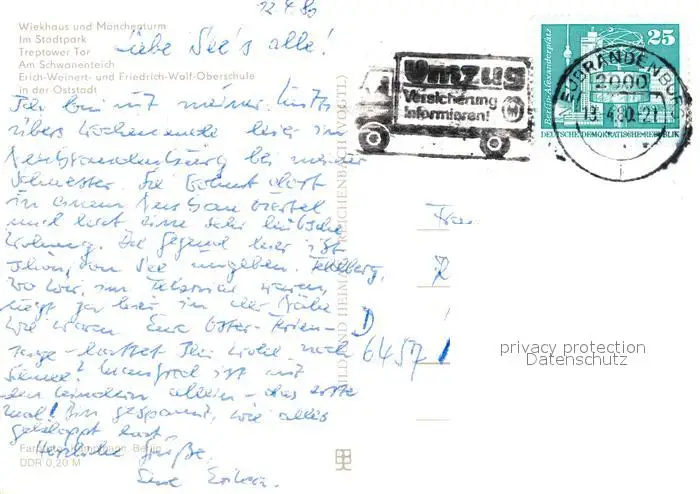 12.4.80
Wiekhaus und Mönchenturm
Im Stadtpark
Treptower Tor
Am Schwanenteich
Erich-Weinert- und Friedrich-Wolf-Oberschule
in der Oststadt
Liebe See's alle!
Ich bin mit meiner
übers Wochenende hier in
Neubrandenburg bei meiner
Schwester. Sie wohnt dort
in einem Neubauviertel
und hat eine sehr hübsche
Wohnung. Die Gegend hier ist
schön, von See umgeben. Feldberg,
wo wir im Februar waren,
liegt ja hier in der Nähe
Wie waren Eure Oster-Ferien-
tage - hattet Ihr wohl noch
Schnee? ist mit
den Kindern allein - das erste
Mal! Bin gespannt, wie alles
geklappt hat.
Herzliche Grüße,
Eure
DDR 0,20 M
BILD UND HEIMAT REICHENBACH (VOGTL)
Umzug
Versicherung
informieren!
25
Berlin-Alexanderplatz
DEUTSCHE DEMOKRATISCHE REPUBLIK
NEUBRANDENBURG
2000
13.4.80.-21
Frau
D
6457
privacy protection
Datenschutz